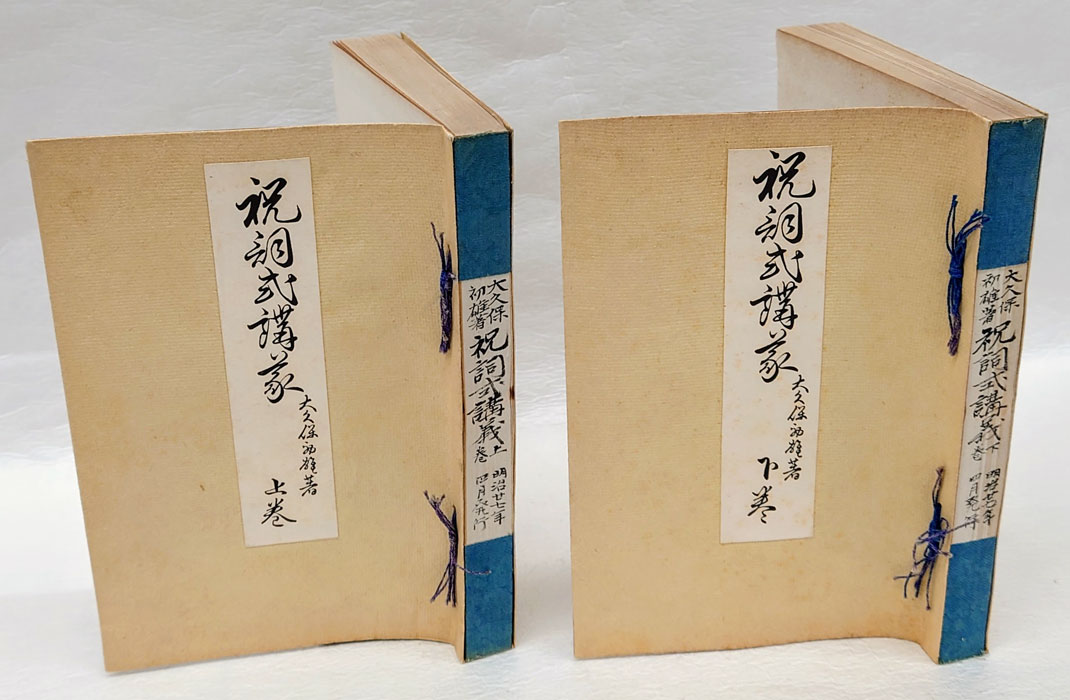 祝詞式講義
大久保初雄著
上巻
大久保
初雄著
祝詞式講義上巻
明治廿七年
四月発行
祝詞式講義
大久保初雄著
下巻
大久保
初雄著
祝詞式講義下巻
明治廿七年
四月発行